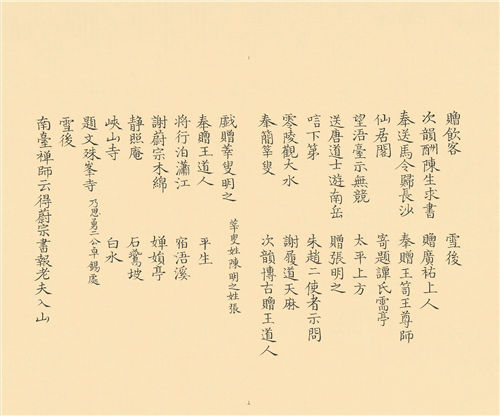 贈飲客 雪後
次韻酬陳生求書 贈廣祐上人
奉送馬令歸長沙 奉贈王笥王尊師
仙居閣 寄題譚氏亭
望浯臺示無競 太平上方
送唐道士遊南岳 贈張明之
唁下第 朱趙二使者示問
零陵觀大水 謝履道天麻
奉簡莘叟 次韻博古贈王道人
戲贈莘叟明之 莘叟姓陳明之姓張
奉贈王道人 平生
將行泊瀟江 宿浯溪
謝蔚宗木綿 嬋娟亭
静照庵 石鶯坡
峽山寺 白水
題文殊峯寺 乃思勇二公卓錫處
雪後
南臺禅師云得蔚宗書報老夫入山